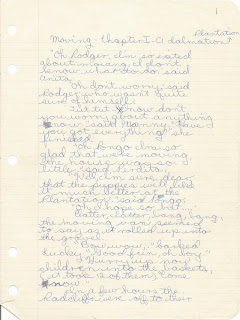 1
Plantation
Moving - Chapter I - 101 dalmations
"Oh Rodger, I'm so exited
about moving, I don't
know what to do," said
Anita.
"Oh don't worry," said
Rodger who wasn't quite
sure of himself.
don't
you worry about anything
now" said Nanny. "have
you got everything?" she
finished.
"Oh Pongo I'm so
glad that we're moving
the house was so
little," said Perdita.
"Well I'm sure, dear,
that the puppies will like
it much better at the
Plantation," said Pongo.
"Oh I hope so,
"Clatter, clatter, bang, bang,"
the moving van seemed
to say as it rolled up into
the
"Bow, wow," barked
Lucky, "Woof, oh boy."
"Hurry up now
children into the baskets,"
(it took 2 of them) "Come
now"
In a few hours the
Raddliffs were off to their